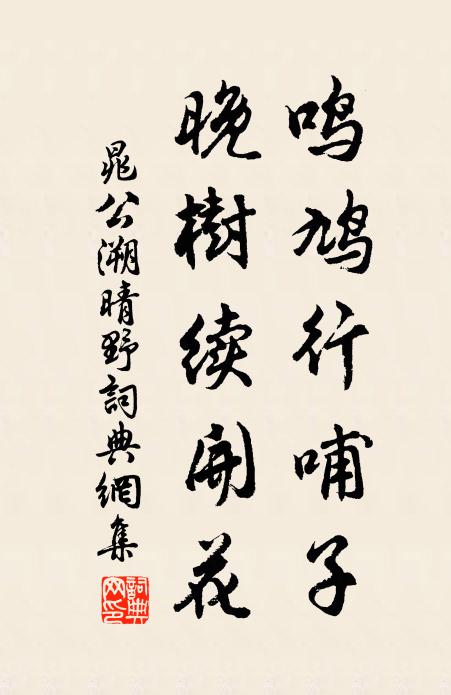 鸣鸠行哺子
晚樹续開花
晁公溯晴野詞典網集
詞典网印